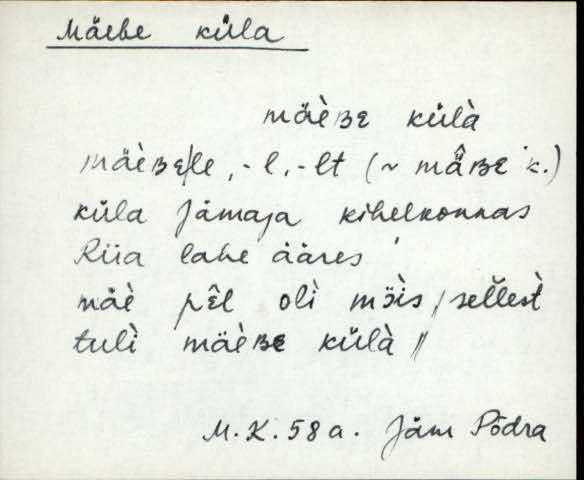 Mäebe küla
mäèʙE külà
mäèʙE|le, -l, -lt (~ mä̂ʙE k.)
küla Jämaja kihelkonnas
Riia lahe ääres
mäè pɛ̂l olì möìs / sellest̀
tulì mäèʙE külà //
M.K. 58 a. Jäm Põdra